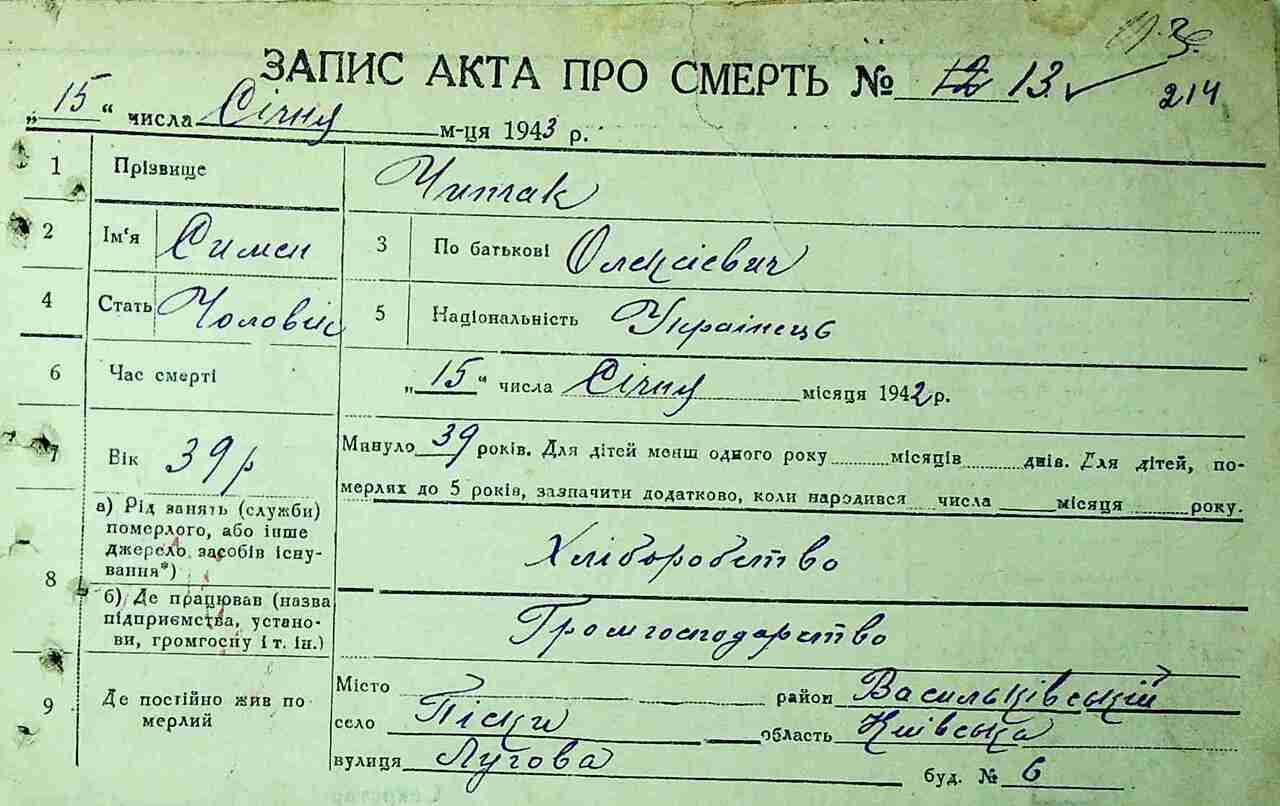 ЗАПИС АКТА ПРО СМЕРТЬ № 13
214
„15“ числа Січня м-ця 1943 р.
1 Прізвище Чиплак
2 Ім'я Симен 3 По батькові Олексієвич
4 Стать Чоловік 5 Національність Українець
6 Час смерті „15“ числа Січня місяця 1942 р.
7 Вік 39 р Минуло 39 років. Для дітей менш одного року місяців днів. Для дітей, по-
мерлях до 5 років, зазначити додатково, коли народився числа місяця року.
8 а) Рід занять (служби)
померлого, або інше
джерело засобів існу-
вання*) Хліборобство
б) Де працював (назва
підприємства, устано-
ви, громгоспу і т. ін.) Громгосподарство
9 Де постійно жив по
мерлий
Місто район Васильківській
село Піски область Київська
вулиця Лугова буд. № 6